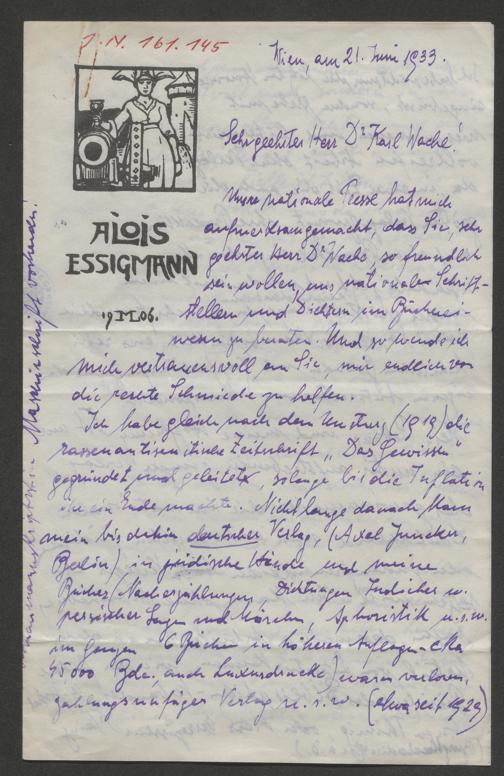 J.N. 161.145
Wien, am 21. Juni 1933.
Sehrgeehrter Herr Dr Karl Wache!
ALOIS
ESSIGMANN
Unsre nationale Presse hat mich
aufmerksamgemacht, dass Sie, sehr
geehrter Herr Dr Wache, so freundlich
sein wollen, uns nationalen Schrift-
stellern und Dichtern im Bücher-
wesen zu beraten. Und so wende ich
mich vertrauensvoll an Sie, mir endlich vor
die rechte Schmiede zu helfen.
Ich habe gleich nach dem Umsturz (1919) die
rassenantisemitische Zeitschrift „Das Gewissen"
gegründet und geleitet, solange bis die Inflation
ein Ende machte. Nicht lange danach kam
mein bis dahin deutscher Verlag, (Axel Juncker,
Berlin) in jüdische Hände und meine
Bücher, (Nacherzählungen, Dichtungen Indischer u.
persischer Sagen und Märchen, Aphoristik u.s.w.
im ganzen 6 Bücher in höheren Auflagen - ca
45000 Bde. auch Luxusdrucke) waren verloren,
zahlungsunfähiger Verlag u.s.w. (etwa seit 1929)
Maschinschrift vorhanden.